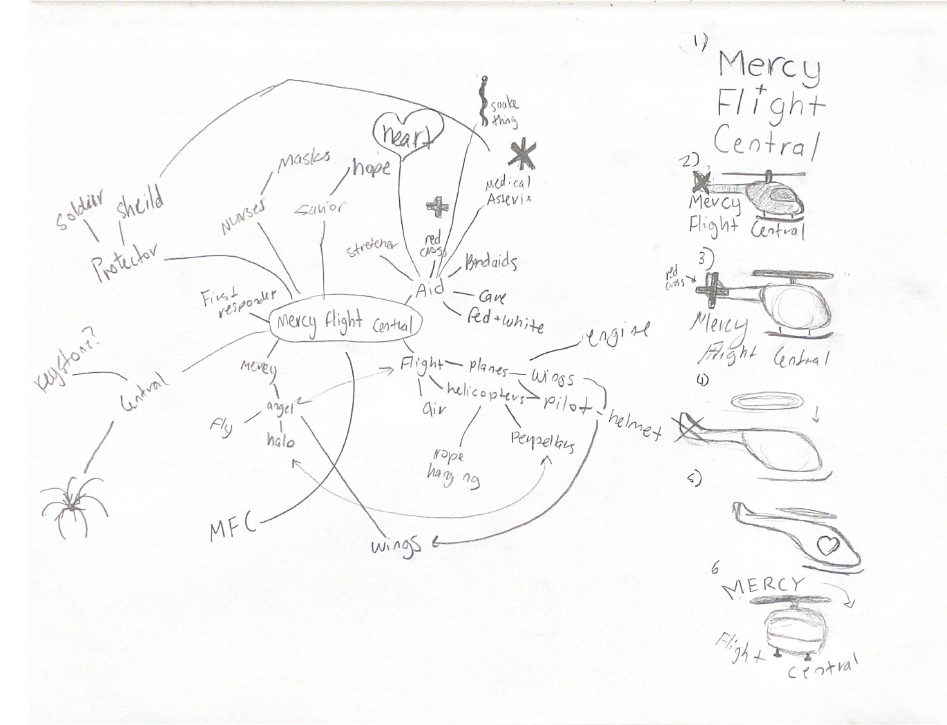 1)
Mercy
Flight
Central
snake
thing
heart
masks
hope
Medical
Asteris
2)
Mercy
Flight Central
soldier
sheild
Nurses
Savior
Stretcher
red
cross
Bndaids
Protector
Aid
Care
Red + white
First
responder
Mercy flight Central
3)
red
cross
Mercy
Flight Central
Keystone?
Central
Mercy
Flight
planes
wings
engine
helicopters
pilot
helmet
air
angel
Fly
halo
rope
hanging
perpellers
4)
MFC
wings
5)
6
MERCY
Flight
Central